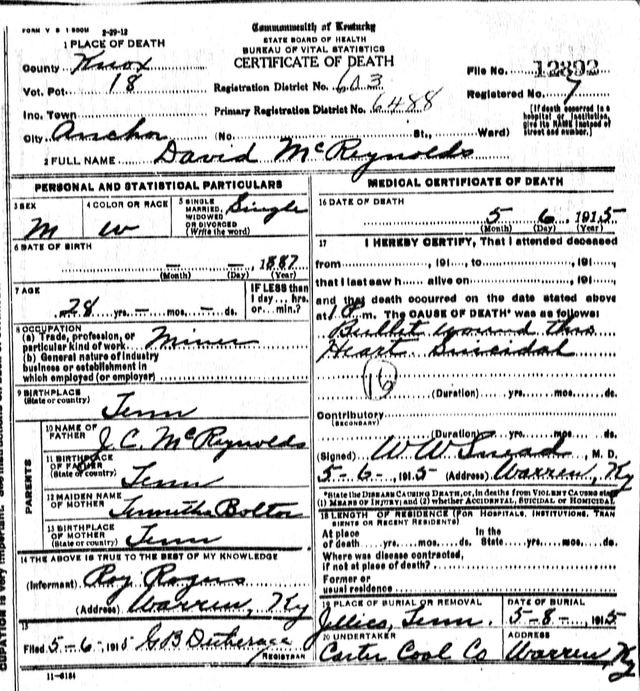 FORM V S 1 500M 2-29-12
Commonwealth of Kentucky
STATE BOARD OF HEALTH
BUREAU OF VITAL STATISTICS
CERTIFICATE OF DEATH
1 PLACE OF DEATH
County Knox
Vot. Pct. 18
Inc. Town
City Anchor (No. St., Ward)
Registration District No. 603
Primary Registration District No. 6488
File No. 12892
Registered No. 7
(If death occurred in a hospital or institution, give its NAME instead of street and number.)
2 FULL NAME David McReynolds
PERSONAL AND STATISTICAL PARTICULARS
3 SEX M
4 COLOR OR RACE W
5 SINGLE, MARRIED, WIDOWED OR DIVORCED (Write the word) Single
6 DATE OF BIRTH
— — 1887
(Month) (Day) (Year)
7 AGE
28 yrs. — mos. — ds.
IF LESS than 1 day... hrs. or... min.?
8 OCCUPATION
(a) Trade, profession, or particular kind of work Miner
(b) General nature of industry
business or establishment in
which employed (or employer)
9 BIRTHPLACE
(State or country) Tenn
PARENTS
10 NAME OF FATHER J. C. McReynolds
11 BIRTHPLACE OF FATHER (State or country) Tenn
12 MAIDEN NAME OF MOTHER Bolton
13 BIRTHPLACE OF MOTHER (State or country) Tenn
14 THE ABOVE IS TRUE TO THE BEST OF MY KNOWLEDGE
(Informant) Roy Rogers
(Address) Warren, Ky
15
Filed 5-6- 1915 G B
REGISTRAR
11-6184
MEDICAL CERTIFICATE OF DEATH
16 DATE OF DEATH
5 6 1915
(Month) (Day) (Year)
17 I HEREBY CERTIFY, That I attended deceased
from , 191 , to , 191 ,
that I last saw h alive on , 191 ,
and that death occurred on the date stated above
at 1 P.m. The CAUSE OF DEATH* was as follows:
Bullet wound thro
Heart. Suicidal
16
(Duration) yrs. mos. ds.
Contributory
(SECONDARY)
(Duration) yrs. mos. ds.
(Signed) W W , M. D.
5-6-, 1915 (Address) Warren, Ky
*State the DISEASE CAUSING DEATH, or, in deaths from VIOLENT CAUSES state
(1) MEANS OF INJURY; and (2) whether ACCIDENTAL, SUICIDAL OR HOMICIDAL
18 LENGTH OF RESIDENCE (FOR HOSPITALS, INSTITUTIONS, TRAN
SIENTS OR RECENT RESIDENTS)
At place of death yrs. mos. ds. In the State yrs. mos. ds.
Where was disease contracted,
if not at place of death?
Former or
usual residence
19 PLACE OF BURIAL OR REMOVAL
Jellico, Tenn.
DATE OF BURIAL
5-8- 1915
20 UNDERTAKER
Carter Coal Co
ADDRESS
Warren, Ky